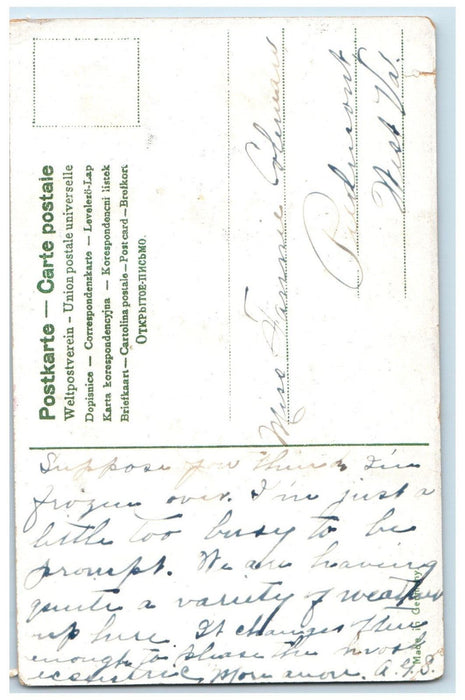 Postkarte — Carte postale
Weltpostverein - Union postale universelle
Dopisnice — Correspondenzkarte — Levelező-Lap
Karta korespondencyjna — Korespondencni lístek
Briefkaart — Cartolina postale — Post card — Brefkort
Открытое-письмо.
Miss Fannie Coleman
Piedmont
West Va.
Suppose you think I'm
frozen over. I'm just a
little too busy to be
prompt. We are having
quite a variety of weather
up here. It changes often
enough to please the most
eccentric. More anon. A.
Made in Germany